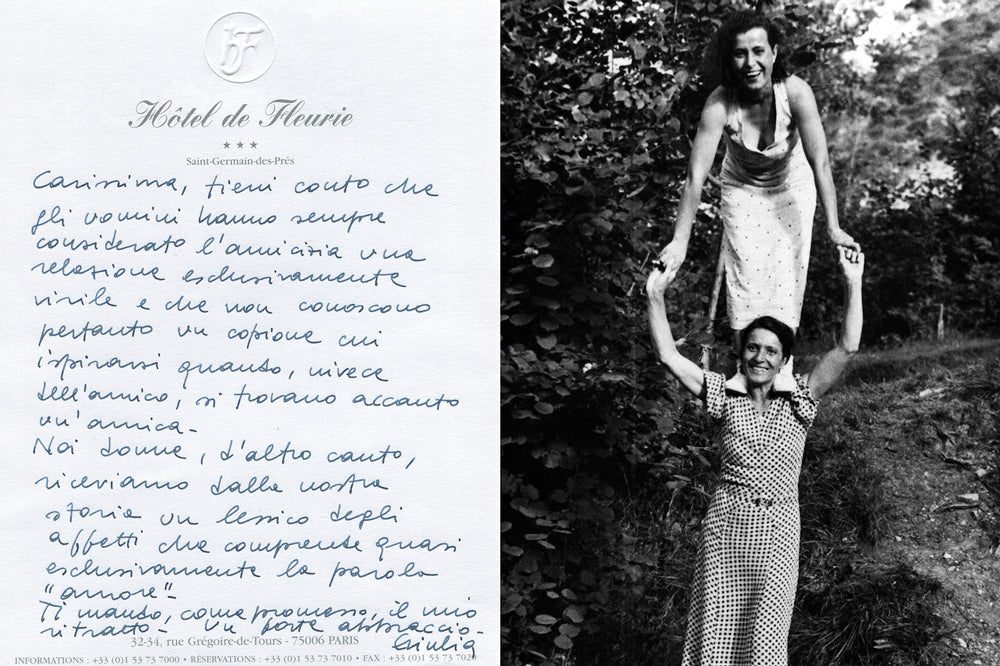 hF
Hôtel de Fleurie
★ ★ ★
Saint-Germain-des-Prés
Carissima, tieni conto che
gli uomini hanno sempre
considerato l'amicizia una
relazione esclusivamente
virile e che non conoscono
pertanto un copione cui
ispirarsi quando, invece
dell'amico, si trovano accanto
un'amica -
Noi donne, d'altro canto,
riceviamo dalla nostra
storia un lessico degli
affetti che comprende quasi
esclusivamente la parola
"amore" -
Ti mando, come promesso, il mio
ritratto - Un forte abbraccio -
Giulia
32-34, rue Grégoire-de-Tours - 75006 PARIS
INFORMATIONS : +33 (0)1 53 73 7000 • RÉSERVATIONS : +33 (0)1 53 73 7010 • FAX : +33 (0)1 53 73 7020